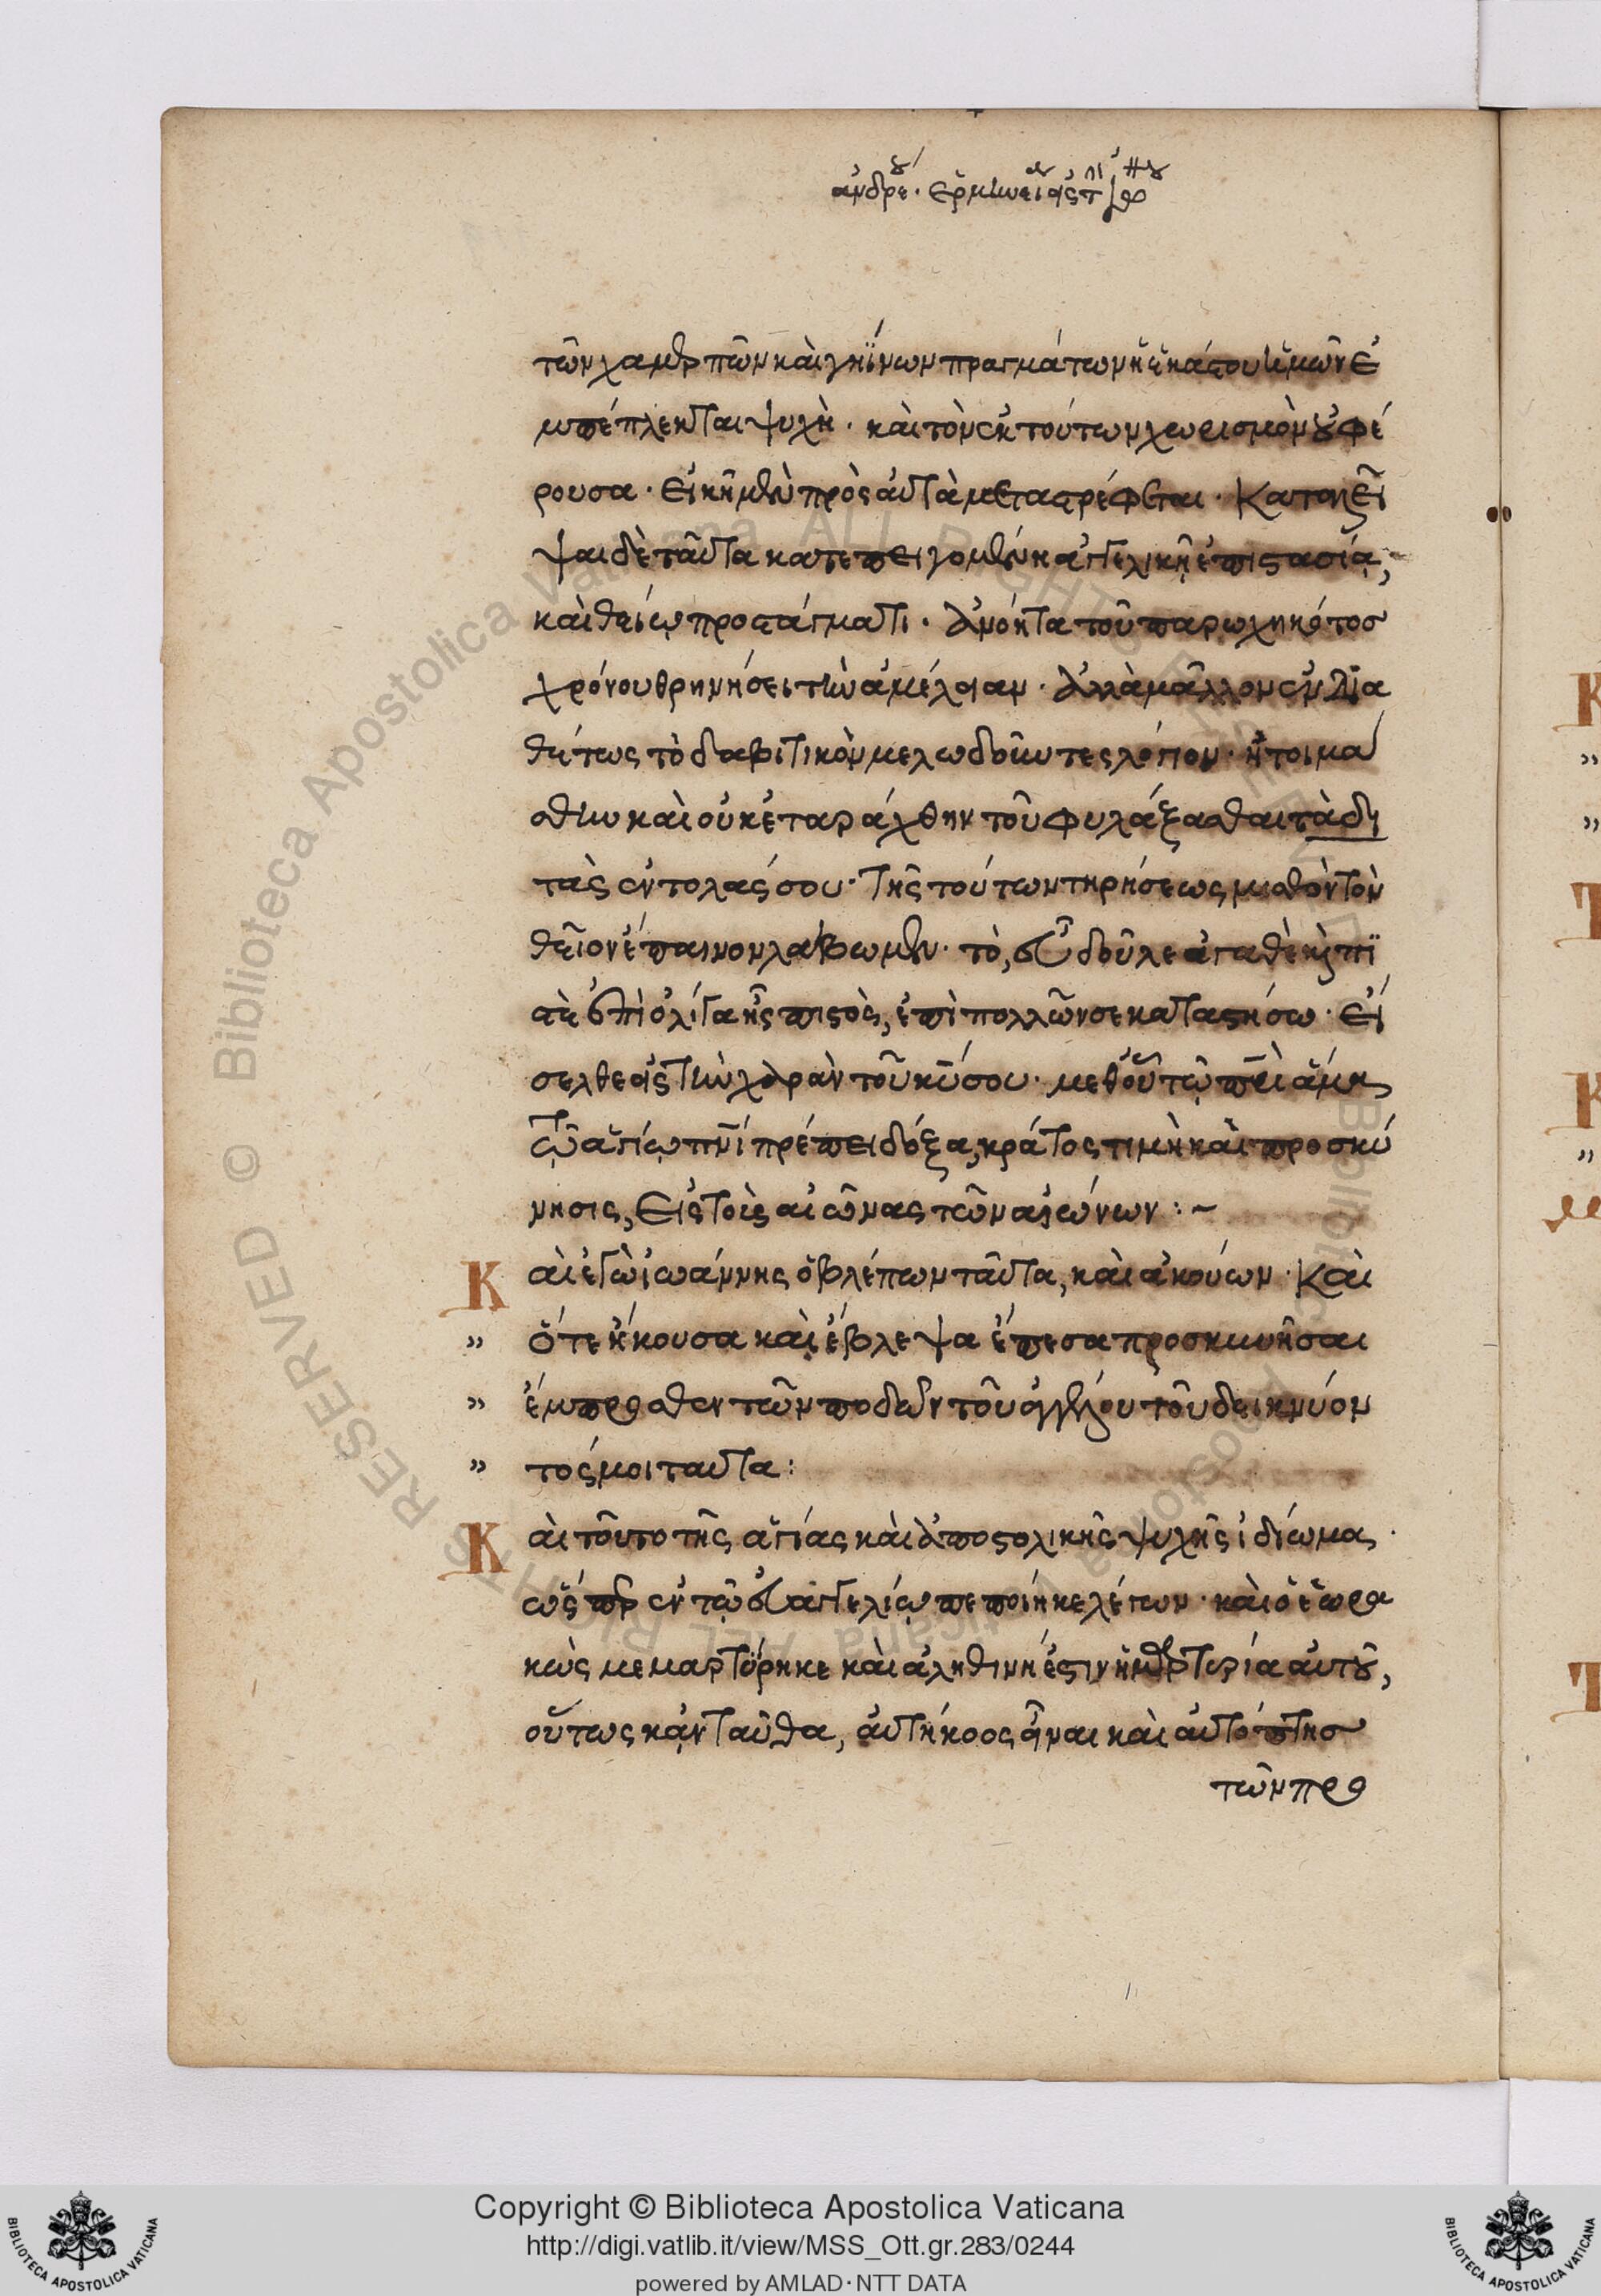 τῶν χαμερπῶν καὶ γηΐνων πραγμάτων ἡ ἑκάστου ἡμῶν ἐ
μπέπλεκται ψυχὴ· καὶ τὸν ἐκ τούτων χωρισμὸν οὐ φέ
ρουσα· εἰκῆ μὲν πρὸς αὐτὰ μεταστρέφεται·
ψαι δὲ ταῦτα κατεπειγομένη ἀγγελικῇ ἐπιστασίᾳ,
καὶ θείῳ προστάγματι· ἀνόητα τοῦ παρωχηκότος
χρόνου θρηνήσει τὴν ἀμέλειαν· ἀλλὰ μᾶλλον ἐνδια
θέτως τὸ δαβιτικὸν μελωδοῦντες λόγιον· ἡτοιμά
σθην καὶ οὐκ ἐταράχθην τοῦ φυλάξασθαι τὰ δη
τὰς ἐντολάς σου· τῆς τούτων τηρήσεως μισθὸν τὸν
θεῖον ἔπαινον λάβωμεν· τὸ, εὖ δοῦλε ἀγαθὲ καὶ πι
στὲ ἐπὶ ὀλίγα ἦς πιστὸς, ἐπὶ πολλῶν σε καταστήσω· εἴ
σελθε εἰς τὴν χαρὰν τοῦ κυ σου· μεθ οὗ τῷ πρὶ ἅμα
τῷ ἁγίῳ πνὶ πρέπει δόξα, κράτος τιμὴ καὶ προσκύ
νησις, εἰς τοὺς αἰῶνας τῶν αἰώνων :~
Καὶ ἐγὼ ἰωάννης ὁ βλέπων ταῦτα, καὶ ἀκούων· Καὶ
" ὅτε ἤκουσα καὶ ἔβλεψα ἔπεσα προσκυνῆσαι
" ἔμπροσθεν τῶν ποδῶν τοῦ ἀγγέλου τοῦ δεικνύον
" τός μοι ταῦτα:
Καὶ τοῦτο τῆς ἁγίας καὶ ἀποστολικῆς ψυχῆς ἰδίωμα·
ὥσπερ ἐν τῷ εὐαγγελίῳ πεποίηκε λέγων· καὶ ὁ ἑωρα
κὼς μεμαρτύρηκε καὶ ἀληθινή ἐστιν ἡ μαρτυρία αὐτοῦ,
οὕτως κἀνταῦθα, αὐτήκοος εἶναι καὶ αὐτόπτης
τῶν προ
Copyright © Biblioteca Apostolica Vaticana
http://digi.vatlib.it/view/MSS_Ott.gr.283/0244
powered by AMLAD·NTT DATA